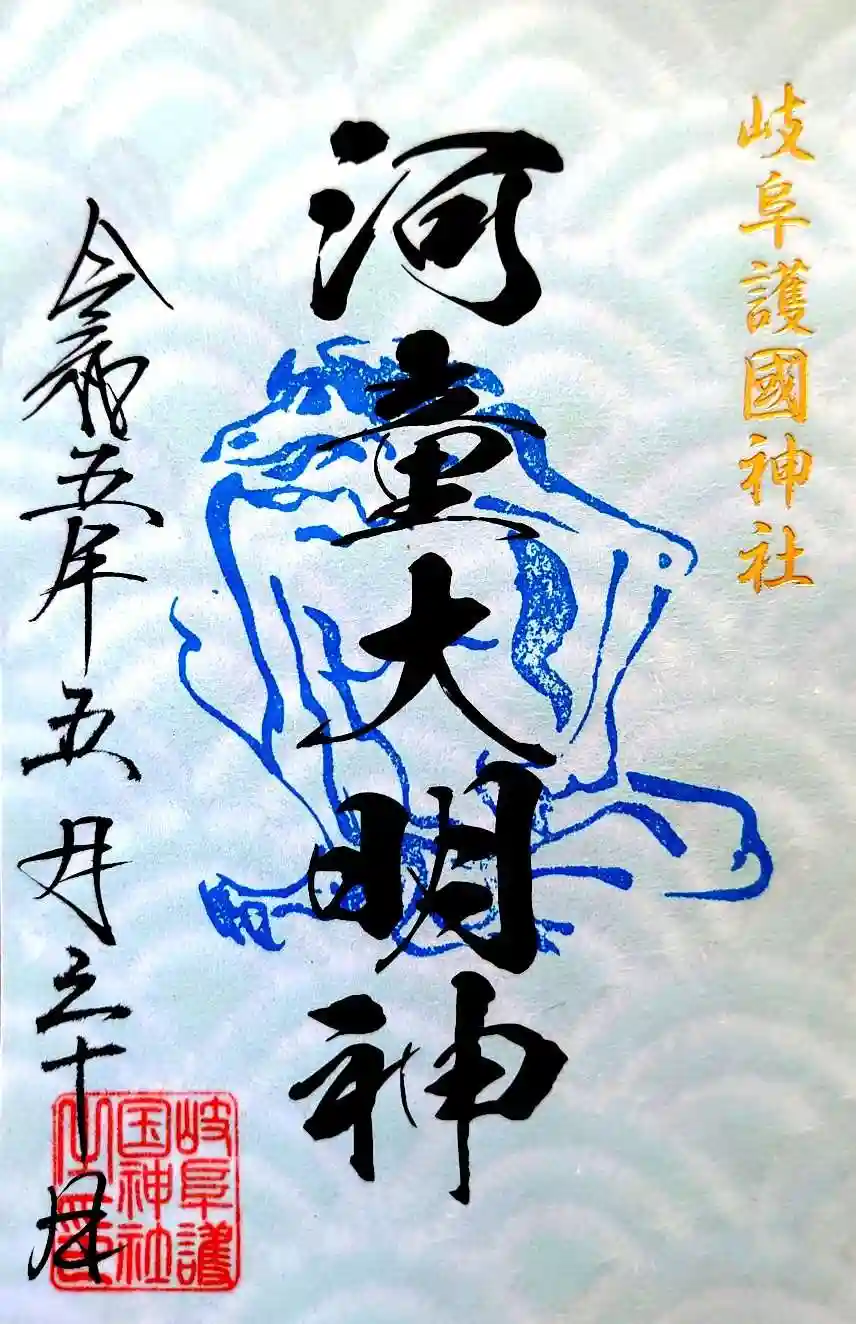 岐阜護國神社
河童大明神
令和五年五月三十日
岐阜護
国神社
之印